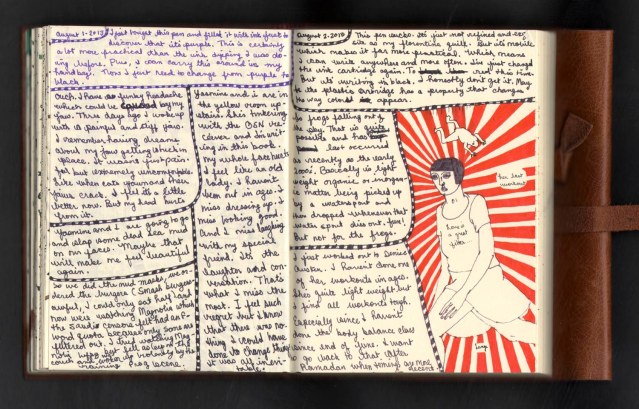 August 1, 2013 I just bought this pen and filled it with ink first to
discover that it's purple. This is certainly
a lot more practical than the ink dipping I was do-
ing before. Plus, I can carry this around in my
handbag. Now I just need to change from purple to
black.
Ouch. I have a funky headache
which could be caused by my
jaw. Three days ago I woke up
with a painful and stiff jaw.
I remember having dreams
about my jaw getting stuck in
place. It wasn't just pain-
ful but extremely uncomfortable.
Like when cats yawn and their
jaws crack. I feel it's a little
better now. But my head hurts
from it.
Yasmin and I are going to go
and slap some dead sea mud
on our faces. Maybe that
will make me feel beautiful
again.
So we did the mud masks, wond-
ered the burgers (Smash burgers—
awful, I could only eat half) and
now were watching Magnolia which
the Saudi censors felt had an F-
word quota because only some are
filtered out. I tried watching Mag-
nolia but fell asleep on the
couch and woke up violently by the
raining frog scene.
Yasmin and I are in
the yellow room up-
stairs. She's tinkering
with the BGN re-
and I'm writ-
ing in this book.
My whole face hurts
I feel like an old
lady. I haven't
been out in ages. I
miss dressing up. I
miss looking good.
And I miss laughing
with my special
friend. It's the
laughter and con-
versation. That's
what I miss the
most. I feel such
regret but I know
that there was no-
thing I could have
done to change things
it was all inevi-
table.
August 2, 2013 This pen sucks. It's just not refined and ex-
as my florentine quill. But it's mobile
which makes it far more practical. Which means
I can write anywhere and more often. I've just changed
the ink cartridge again. To red this time.
But it's writing in black. I honestly don't get it. May
be the plastic cartridge has a property that changes
the way colors appear.
So frogs falling out of
the sky. That is quite
possible and has
last occurred
as recently as the early
2000s. Basically its light
weight organic or inorgan-
ic matter being picked up
by a waterspout and
then dropped whenever that
water spout dies out. Joy!
But not for the frogs.
I just worked out to Denise
Austin. I haven't done one
of her workouts in ages.
Her quite light weight but
I find all workouts tough.
Especially since I haven't
done the body balance class
since end of June. I want
to go back to that after
Ramadan when timings are more
decent.
her last
workout
have a
great